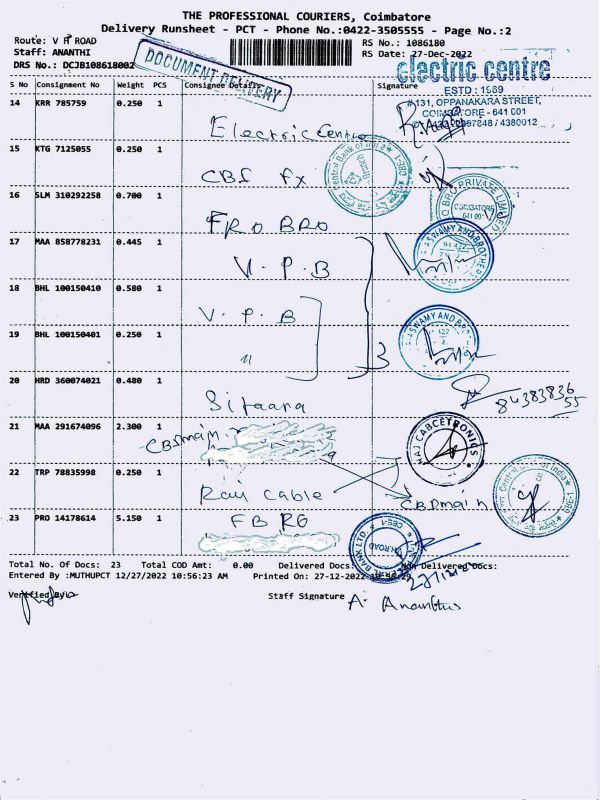 THE PROFESSIONAL COURIERS, Coimbatore
Delivery Runsheet - PCT - Phone No.:0422-3505555 - Page No.:2
Route: V H ROAD
RS No.: 1086180
Staff: ANANTHI
RS Date: 27-Dec-2022
DRS No.: DCJB108618002
DOCUMENT DELIVERY
electric centre
ESTD : 1989
#131, OPPANAKARA STREET,
COIMBATORE - 641 001
S No Consignment No Weight PCS Consignee Details Signature
14 KRR 785759 0.250 1
Electric Centre
15 KTG 7125055 0.250 1
CBI fx
Central Bank of India
16 SLM 310292258 0.700 1
FRO BRO
O BRO PRIVATE LIMITED
COIMBATORE
641 001
17 MAA 858778231 0.445 1
V.P.B
SWAMY AND BROTHERS
18 BHL 100150410 0.580 1
V.P.B
19 BHL 100150401 0.250 1
"
3
SWAMY AND BRO
20 HRD 360074021 0.480 1
Sitaara
84383836
55
21 MAA 291674096 2.300 1
CBI main
RAJ CABCETRONICS
22 TRP 78835998 0.250 1
Raj Cable
CBI main
Central Bank of India
CBE-1
23 PRO 14178614 5.150 1
FB RG
BANK LTD.
CBE-1
Total No. Of Docs: 23 Total COD Amt: 0.00 Delivered Docs: Non Delivered Docs:
Entered By :MUTHUPCT 12/27/2022 10:56:23 AM Printed On: 27-12-2022
Verified By
Staff Signature
A. Ananthi